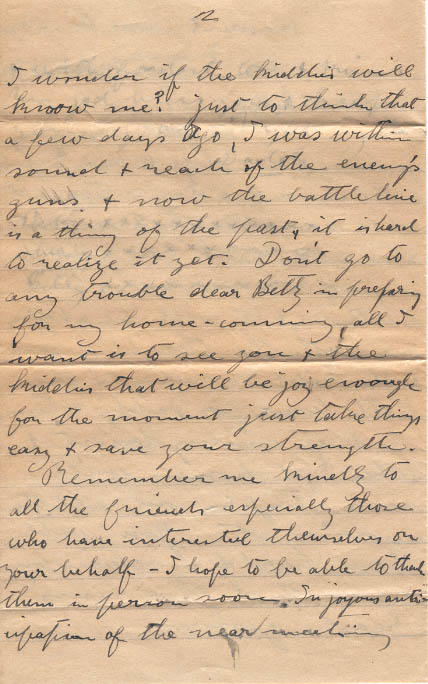 2
I wonder if the kiddies will
know me? just to think that
a few days ago, I was within
sound & reach of the enemy's
guns & now the battle line
is a thing of the past, it is hard
to realize it yet. Don't go to
any trouble dear Betty in preparing
for my home-coming, all I
want is to see you & the
kiddies that will be joy enough
for the moment just take things
easy & save your strength.
Remember me kindly to
all the friends especially those
who have interested themselves on
your behalf - I hope to be able to thank
them in person soon. In joyous anti-
cipation of the near meeting